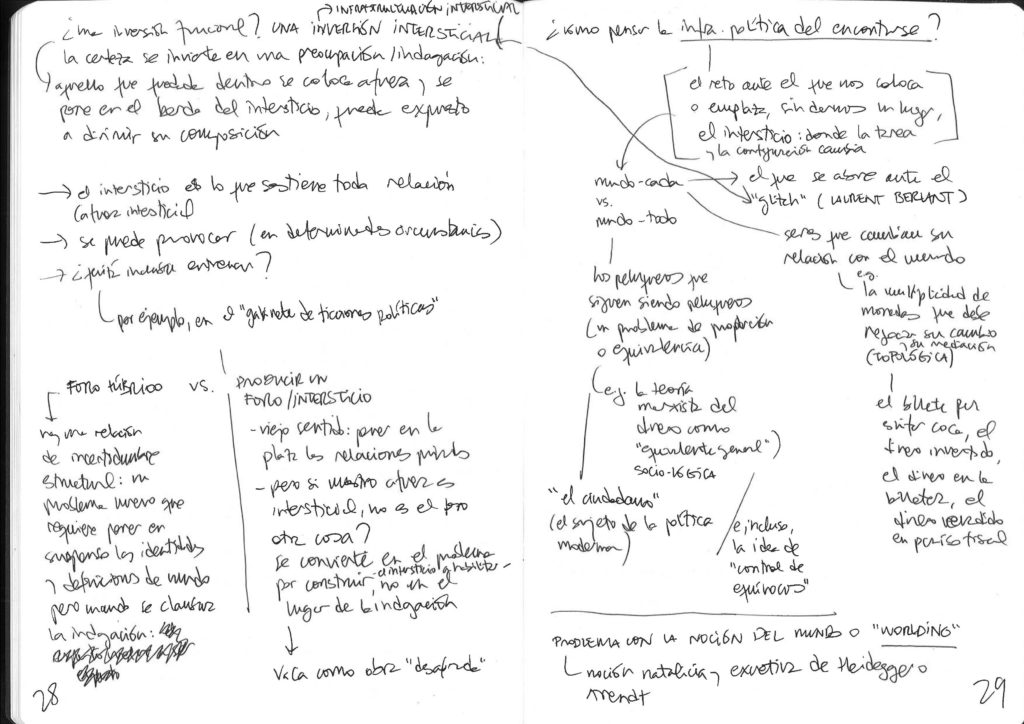 INFRAESTRUCTURACIÓN INTERSTICIAL
¿una inversión funcional? UNA INVERSIÓN INTERSTICIAL
la certeza se invierte en una preocupación/indagación:
aquello que quedaba dentro se coloca afuera, y se
pone en el borde del intersticio, puede expuesto
a dirimir su composición
→ el intersticio es lo que sostiene toda relación
(afuera intersticial
→ se puede provocar (en determinadas circunstancias)
→ ¿quizá incluso entrenar?
por ejemplo, en el "gabinete de ficciones políticas"
FORO PÚBLICO vs. PRODUCIR UN
FORO/INTERSTICIO
hay una relación
de incertidumbre
estructural: un
problema nuevo que
requiere poner en
suspenso las identidades
y definiciones de mundo
pero cuando se clausura
la indagación:
- viejo sentido: poner en la
plaza las relaciones
- pero si nuestro afuera es
intersticial, no es el foro
otra cosa?
se convierte en el problema
por construir, el intersticio a habilitar -
no en el
lugar de la indagación
Vaca como obra "desaforada"
28
¿cómo pensar la infra.política del encontrarse?
el reto ante el que nos coloca
o emplaza, sin darnos un lugar,
el intersticio: donde la tarea
y la configuración cambia
mundo-cada → el que se abre ante el
vs. "glitch" (LAURENT BERLANT)
mundo-todo
seres que cambian su
relación con el mundo
e.g.
la multiplicidad de
monedas que debe
negociar su cambio
y su mediación
(TOPOLÓGICA)
los peluqueros que
siguen siendo peluqueros
(un problema de proporción
o equivalencia)
e.g. la teoría
marxista del
dinero como
"equivalente general")
SOCIO-LÓGICA
el billete por
esnifar coca, el
dinero invertido,
el dinero en la
billetera, el
dinero
en paraíso fiscal
"el ciudadano"
(el sujeto de la política
moderna)
e, incluso,
la idea de
"control de
equívocos"
PROBLEMA CON LA NOCIÓN DEL MUNDO O "WORLDING"
noción natalicia y de Heidegger o
Arendt
29